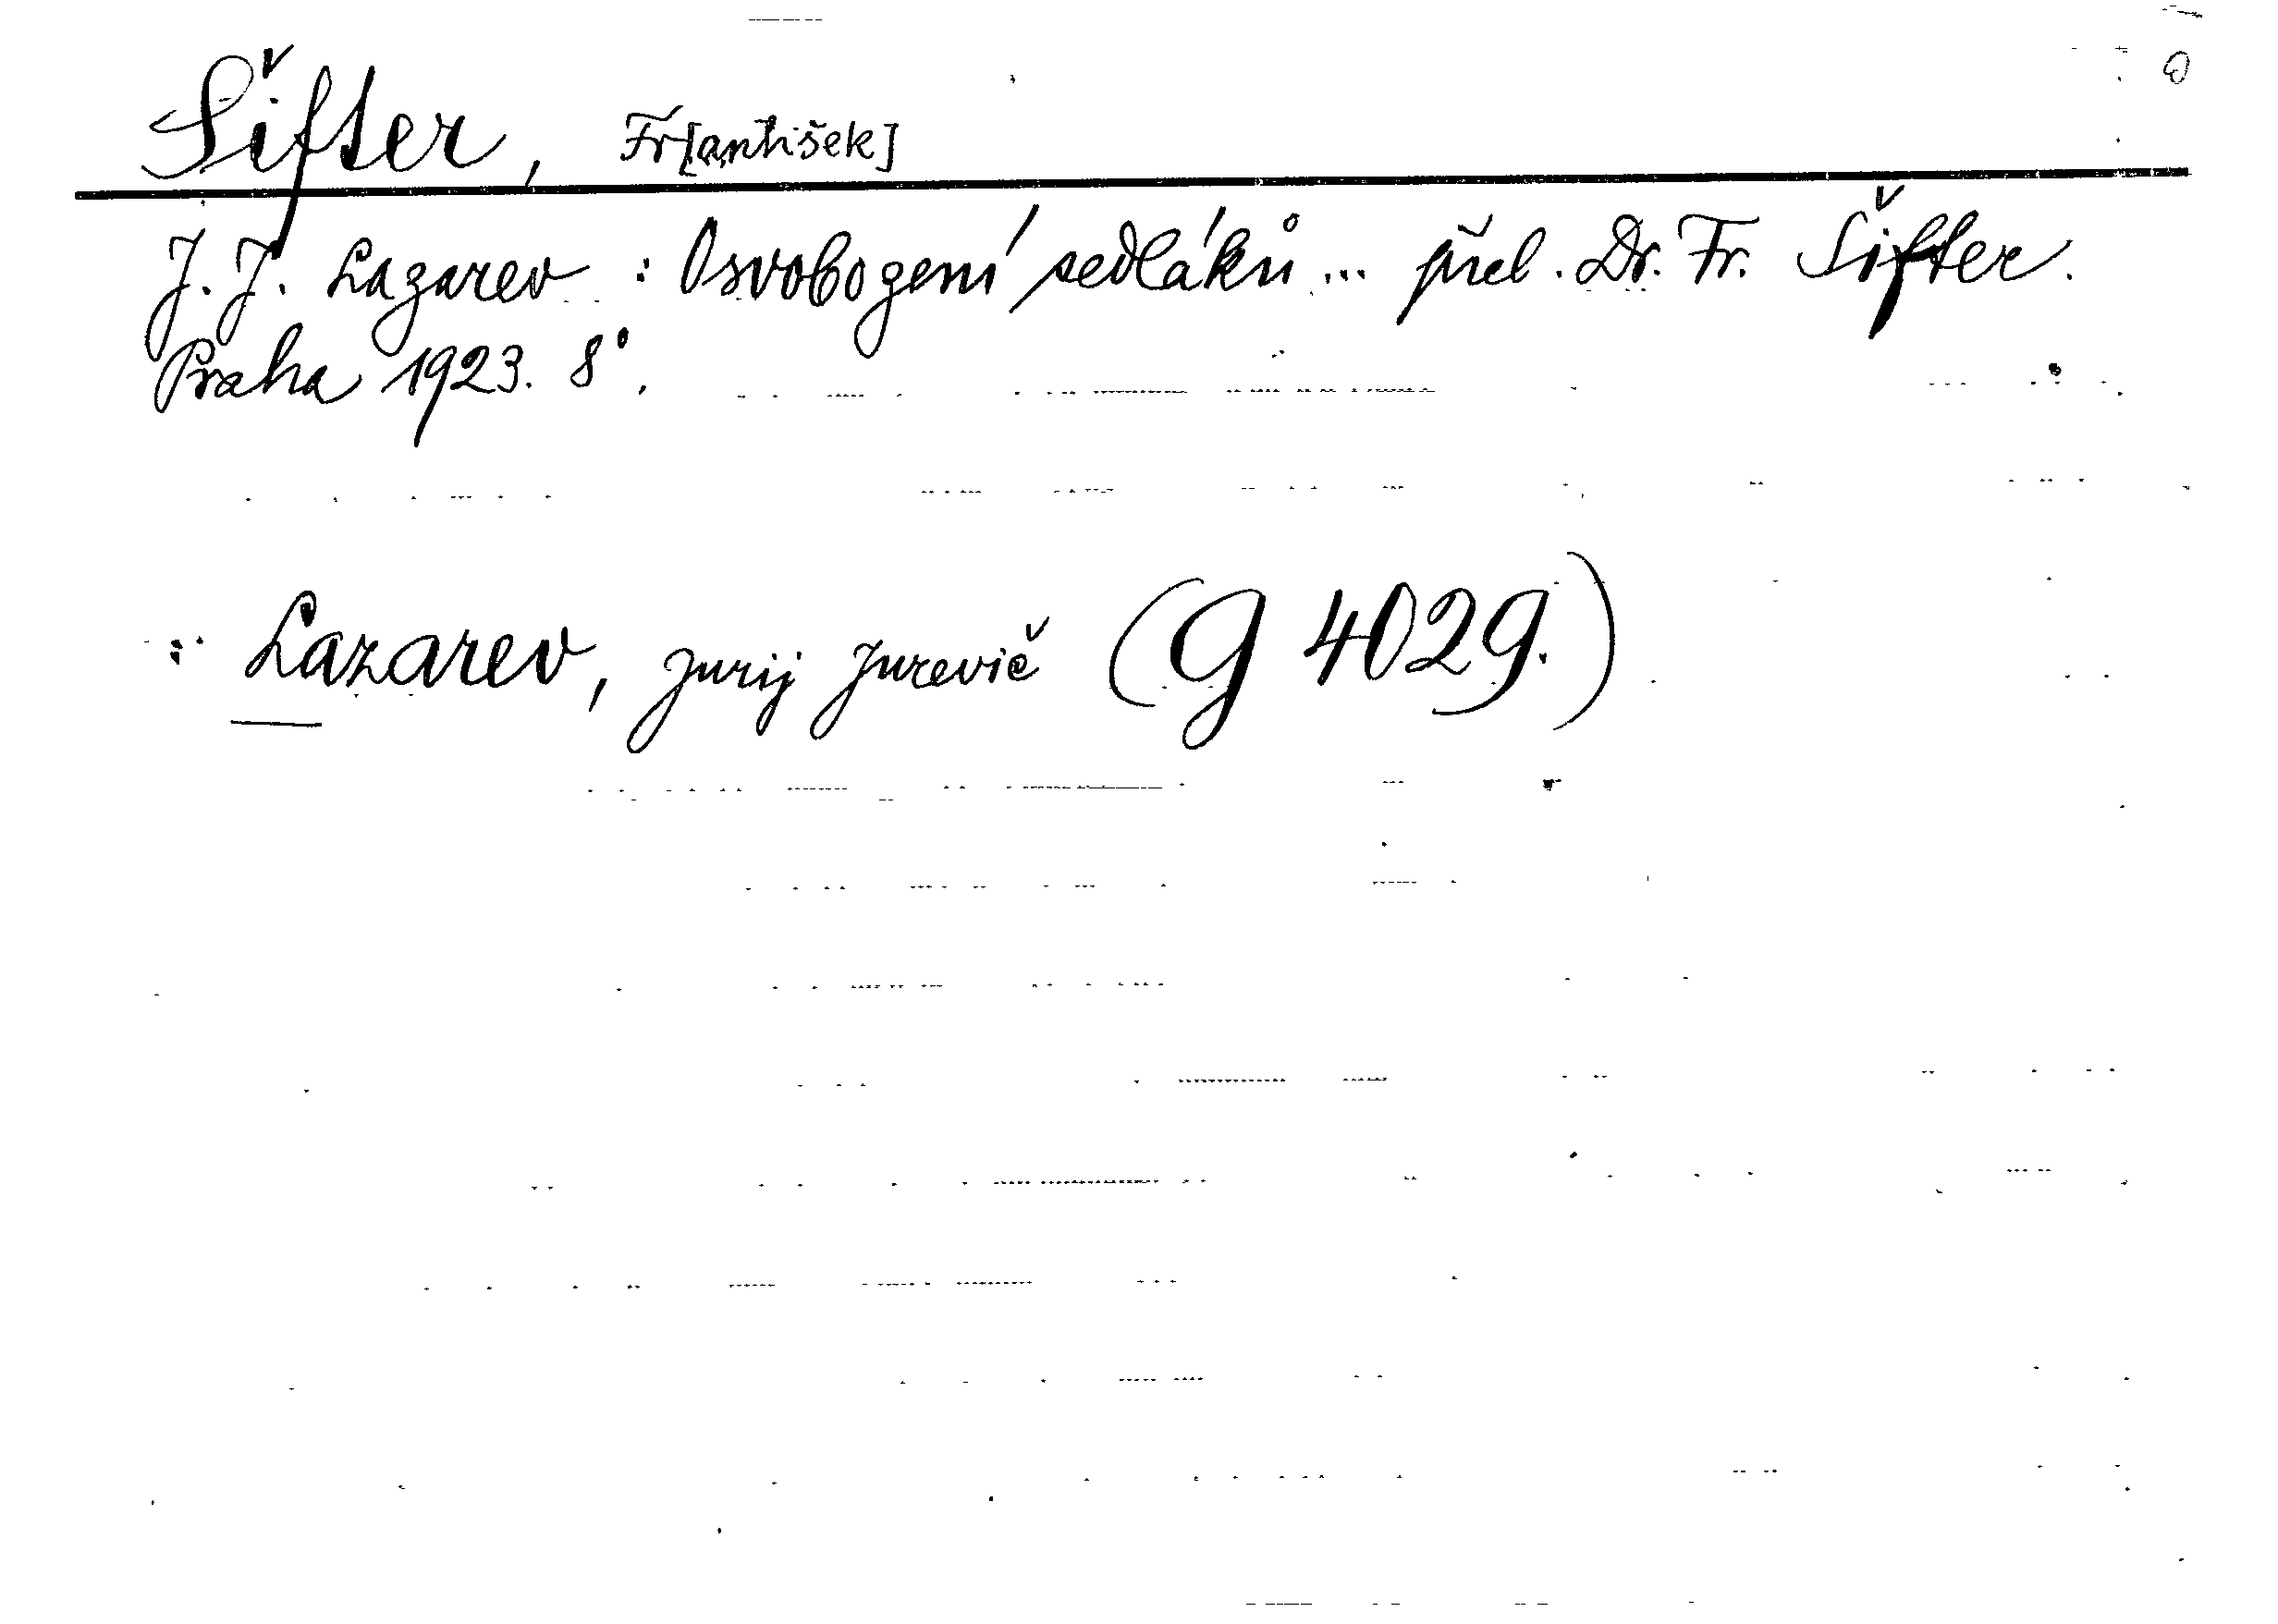 Šifter, Fr[antišek]
J. J. Lazarev : Osvobození sedláků ... přel. Dr. Fr. Šifter.
Praha 1923. 8°.
: Lazarev, Jurij Jurevič (G 4029.)